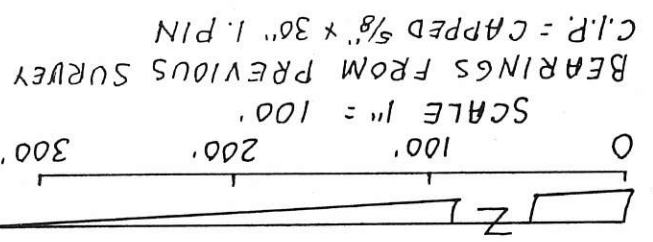 N
0 100' 200' 300'
SCALE 1" = 100'
BEARINGS FROM PREVIOUS SURVEY
C.I.P. = CAPPED 5/8" x 30" I. PIN